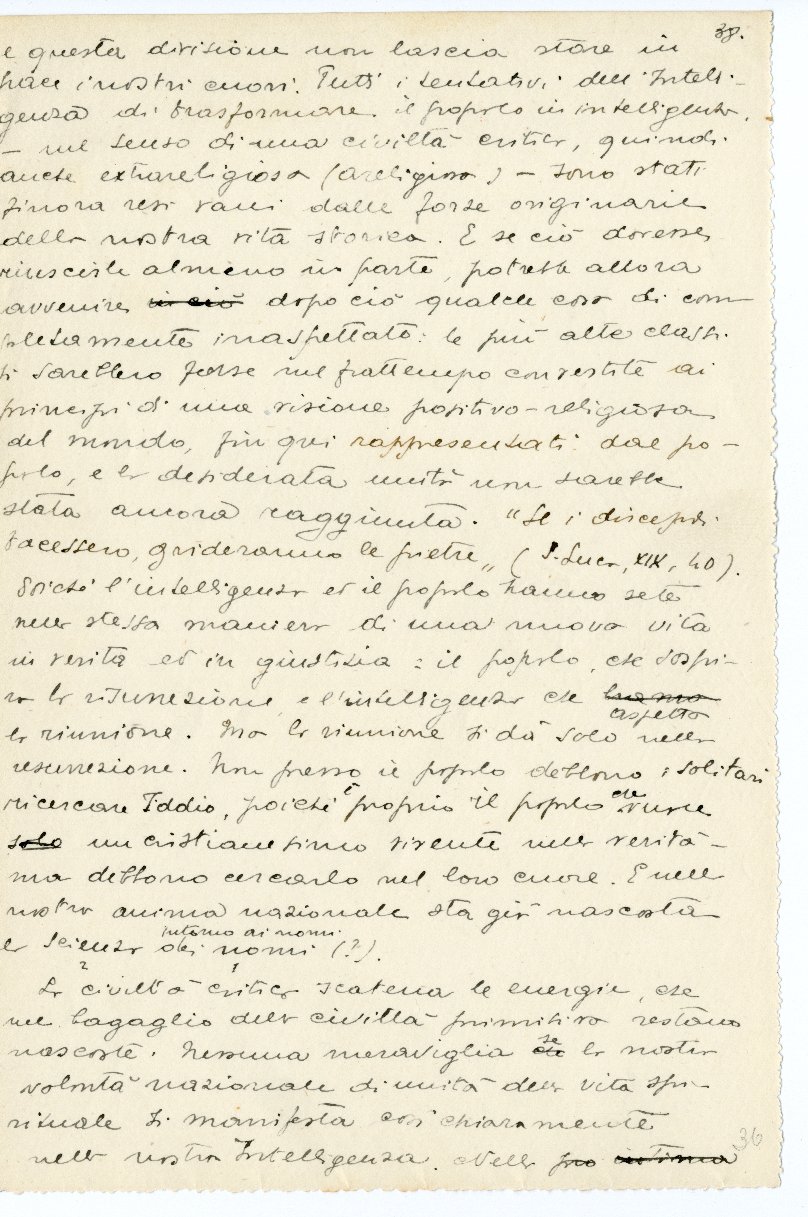 38.
e questa divisione non lascia stare in
pace i nostri cuori. Tutti i tentativi dell'Intelli-
genza di trasformare il popolo in intelligenza,
– nel senso di una civiltà critica, quindi
anche extrareligiosa (areligiosa) – sono stati
finora resi vani dalle forze originarie
della nostra vita storica. E se ciò dovesse
riuscirle almeno in parte, potrebbe allora
avvenire in ciò dopo ciò qualche cosa di com-
pletamente inaspettato: le più alte classi
si sarebbero forse nel frattempo convertite ai
principi di una visione positivo-religiosa
del mondo, fin qui rappresentati dal po-
polo, e la desiderata unità non sarebbe
stata ancora raggiunta. "Se i discepoli
tacessero, grideranno le pietre„ (S. Luca, XIX, 40).
Poiché l'intelligenza ed il popolo hanno sete
nella stessa maniera di una nuova vita
in verità ed in giustizia: il popolo, che sospi-
ra la risurrezione, e l'intelligenza che
aspetta
la riunione. Ma la riunione si dà solo nella
resurrezione. Non presso il popolo debbono i solitari
ricercare Iddio, poiché è proprio il popolo che vuole
solo un cristianesimo vivente nella verità –
ma debbono cercarlo nel loro cuore. E nella
nostra anima nazionale sta già nascosta
intorno ai nomi
la Scienza dei nomi (?).
La civiltà critica scatena le energie, che
nel bagaglio della civiltà primitiva restano
nascoste. Nessuna meraviglia che se la nostra
volontà nazionale di unità della vita spi-
rituale si manifesta così chiaramente
nella nostra Intelligenza. Nella
36